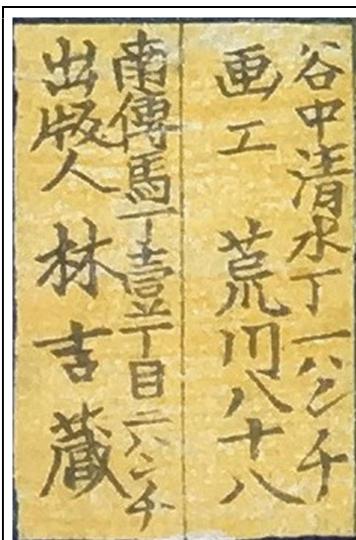 谷中清水丁一ハンチ
画工 荒川八十八
南傳馬丁壹丁目二ハンチ
出版人 林吉藏